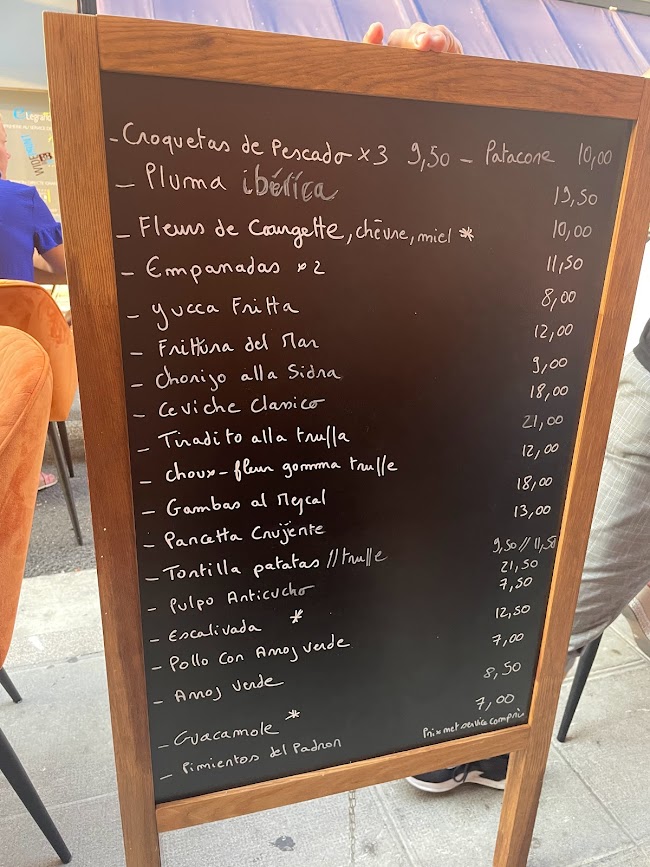 - Croquetas de Pescado x3 9,50 - Patacone 10,00
- Pluma ibérica 19,50
- Fleurs de Courgette, chèvre, miel * 10,00
- Empanadas x2 11,50
- yucca Fritta 8,00
- Frittura del Mar 12,00
- Chorizo alla Sidra 9,00
- Ceviche Classico 18,00
- Tiradito alla truffa 21,00
- choux-fleur gomma truffe 12,00
- Gambas al Mezcal 18,00
- Pancetta Crujiente 13,00
- Tortilla patatas // truffe 9,50 // 11,50
- Pulpo Anticucho 21,50
- Escalivada * 7,50
- Pollo Con Arroz verde 12,50
- Arroz verde 7,00
- Guacamole * 8,50
- Pimientos del Padron 7,00
Prix net service compris
Legrand